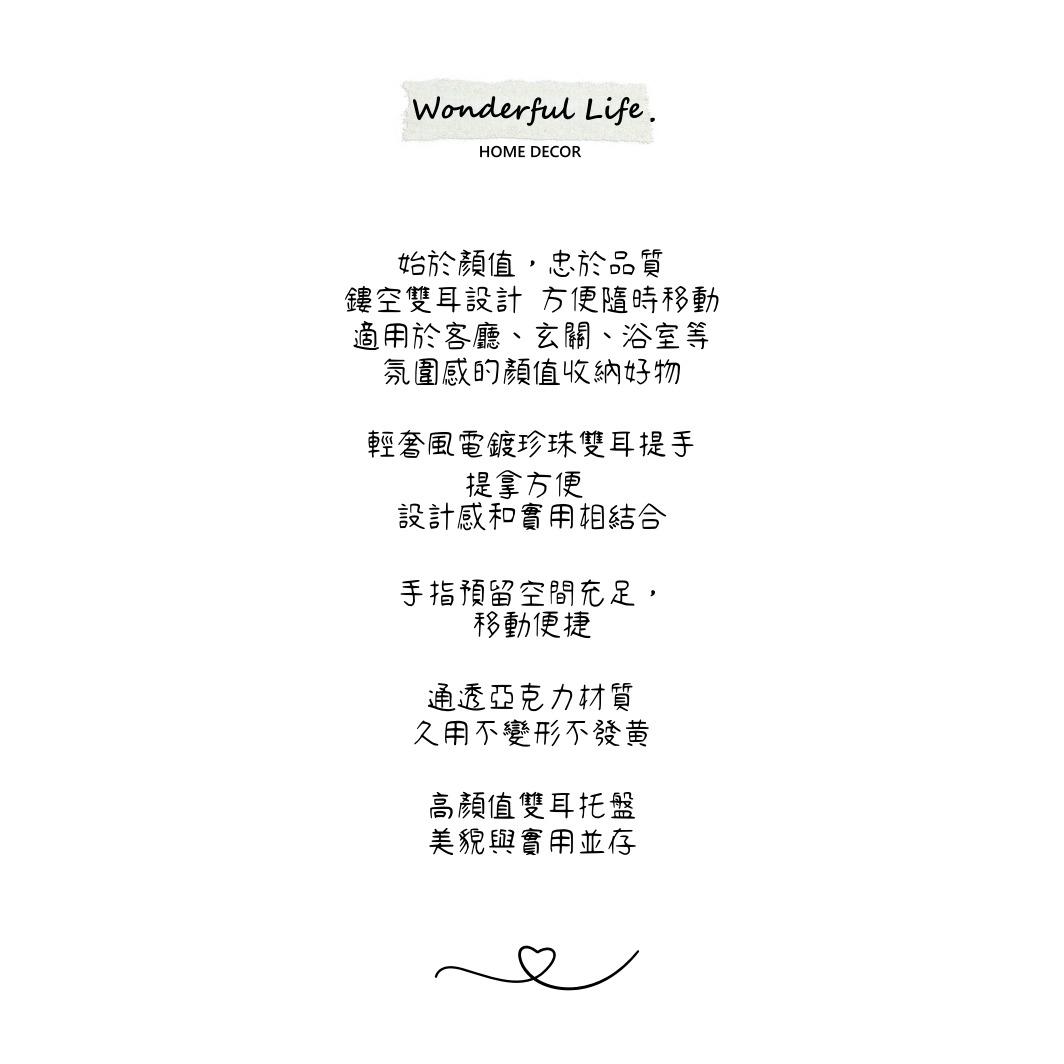 Wonderful Life.
HOME DECOR
始於顏值，忠於品質
鏤空雙耳設計 方便隨時移動
適用於客廳、玄關、浴室等
氛圍感的顏值收納好物
輕奢風電鍍珍珠雙耳提手
提拿方便
設計感和實用相結合
手指預留空間充足，
移動便捷
通透亞克力材質
久用不變形不發黃
高顏值雙耳托盤
美貌與實用並存